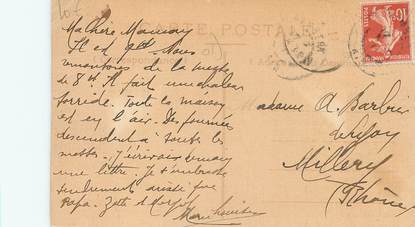 Lot
CARTE POSTALE
Ma chère Maman
Il est 9h. Nous
remontons de la messe
de 8h. Il fait une chaleur
torride. Toute la maison
est en l'air. Des fournées
descendent à toutes les
messes. J'écrirai demain
une lettre. Je t'embrasse
tendrement ainsi que
Papa.
Marie Louise
Madame A. Barbier
Millery
(Rhône)
10